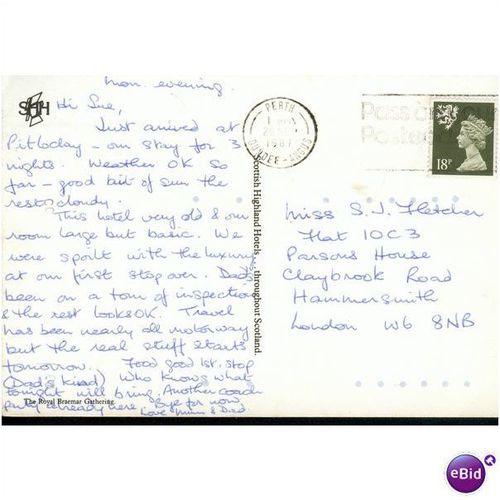 Mon. evening.
SHH
Hi Sue,
Just arrived at
Pitlochry - our stay for 3
nights. Weather OK so
far - good bit of sun the
rest cloudy.
This hotel very old & our
room large but basic. We
were spoilt with the luxury
at our first stop over. Dad's
been on a tour of inspection
& the rest looks OK. Travel
has been nearly all motorway
but the real stuff starts
tomorrow. Food good 1st. stop
(Dad's kind) Who knows what
tonight will bring. Another coach
party already here. Bye for now
Love Mum & Dad.
The Royal Braemar Gathering.
Scottish Highland Hotels throughout Scotland.
PERTH
1987
DUNDEE - ANGUS
18P
Miss S. J. Fletcher
Flat 10C3
Parsons House
Claybrook Road
Hammersmith
London W6 8NB
eBid